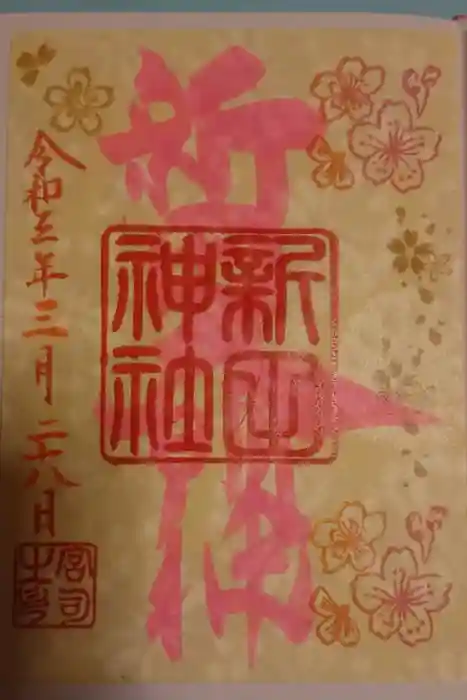 新山神社
新山
神社
令和三年三月二十八日
宮司
之印